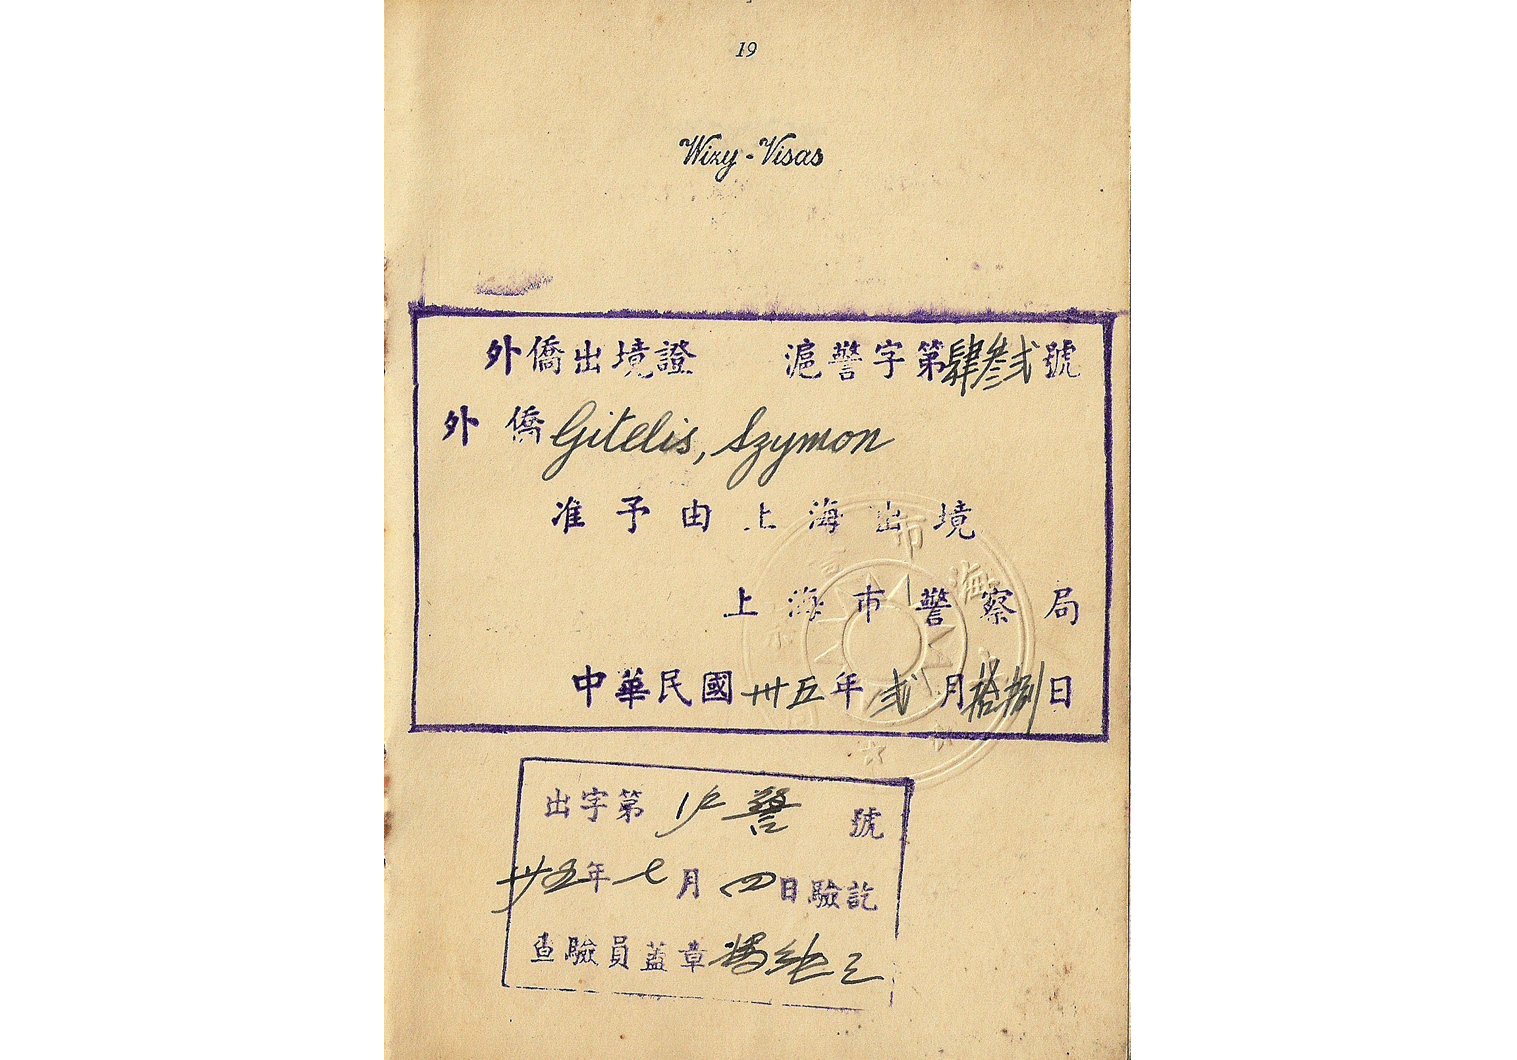 19
Wizy - Visas
外僑出境證 滬警字第肆叁弍號
外僑 Gitelis, Szymon
准予由上海出境
上海市警察局
中華民國卅五年弍月拾捌日
出字第 警 號
卅五年七月四日驗訖
查驗員蓋章